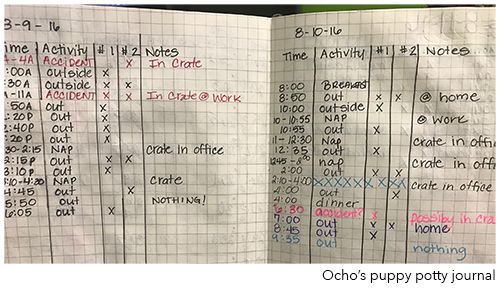 3-9-16
Time Activity #1 #2 Notes
-4A ACCIDENT x In Crate
:00A outside x
:30A outside x
-11A ACCIDENT x x In Crate @ Work
:50A out x
:20P out x
:40P out x
:30-2:15 NAP crate in office
2:15P out x x
3:10P out x
:10-4:30 NAP Crate
4:45 out x
5:50 out NOTHING!
6:05 out x
8-10-16
Time Activity #1 #2 Notes
8:00 BREAKFAST
8:50 out x x @ home
10:00 outside x
10-10:55 NAP @ work
10:55 out x
11-12:30 Nap crate in office
12:35 out x
12:45- nap crate in office
2:00 out x
2:10-4:00 XXXXXXXX crate in office
4:00 out x
4:00 dinner
6:30 accident? x possibly in cra
7:00 out x x home
8:45 out x
9:35 out nothing
Ocho's puppy potty journal